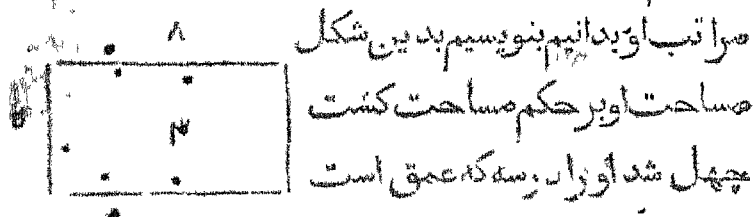 مراتب او بدانیم بنویسیم بدین شکل
مساحت او بر حکم مساحت کشت
چهل شد او را در سه که عمق است
۸
۳